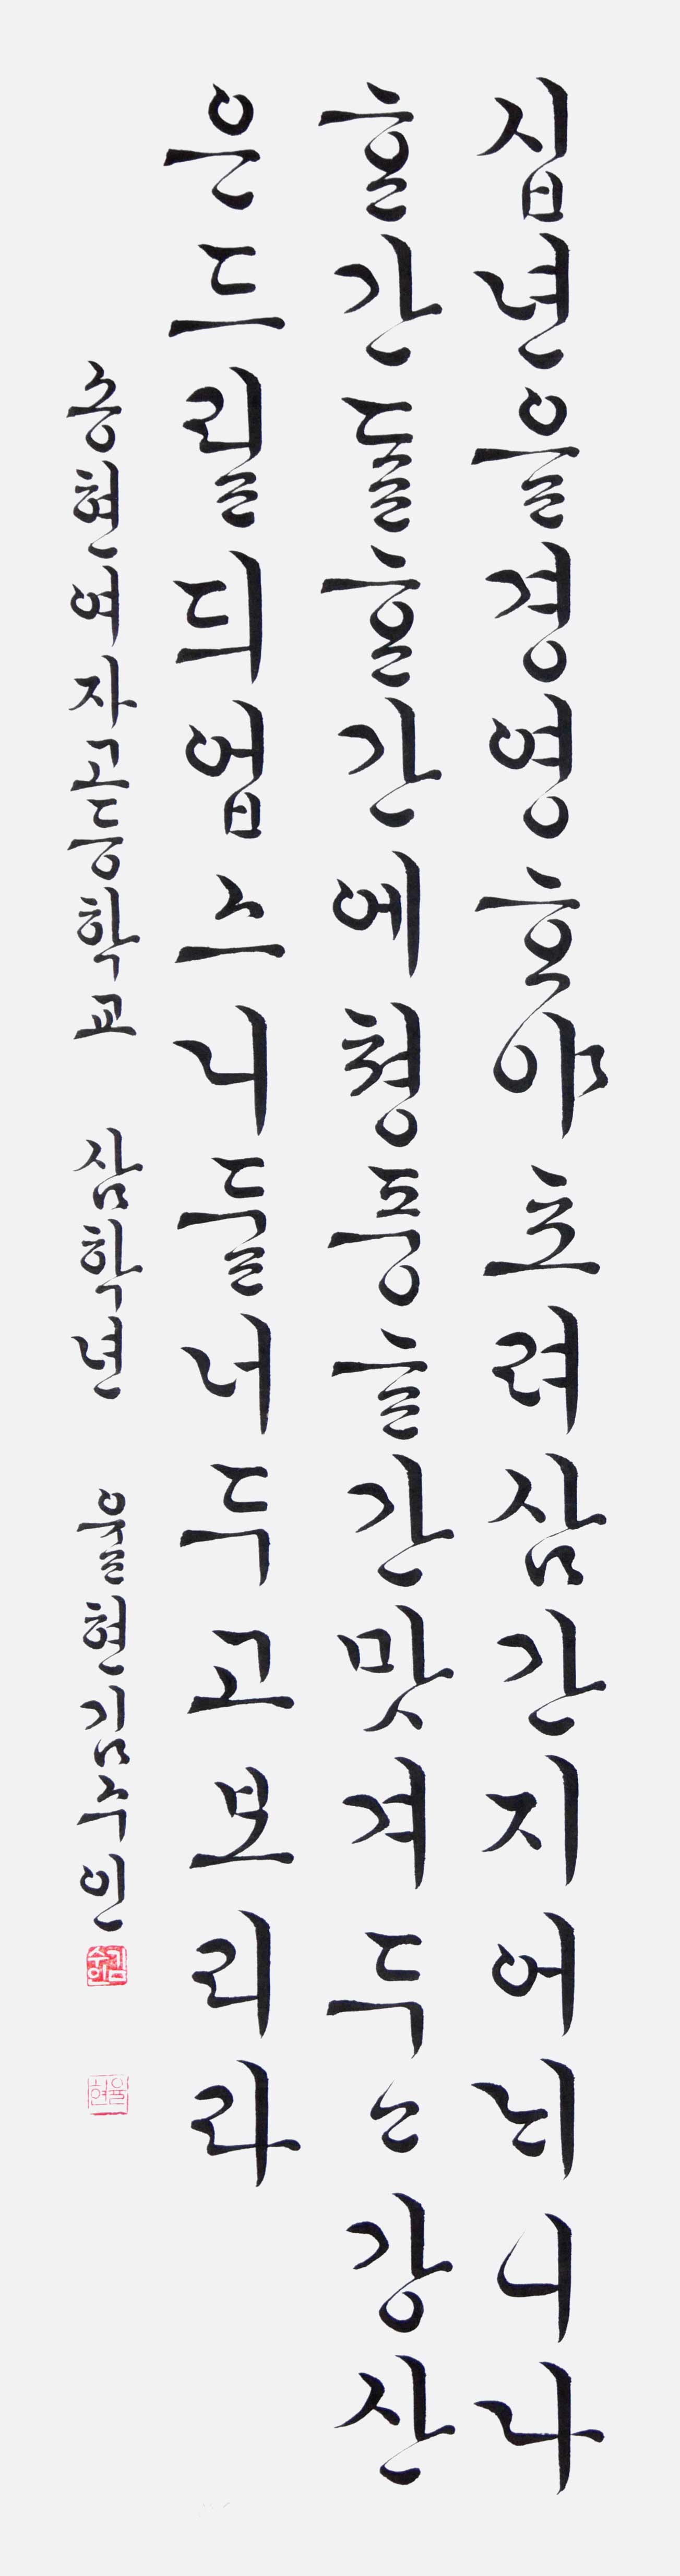 십년을경영ᄒᆞ야초려삼간지어ᄂᆡ니나
ᄒᆞᆫ간ᄃᆞᆯᄒᆞᆫ간에쳥풍ᄒᆞᆫ간맛겨두ᄂᆞᆫ강산
은드릴듸업스니둘너두고보리라
송현여자고등학교 삼학년 율현김수인
김수인
율현